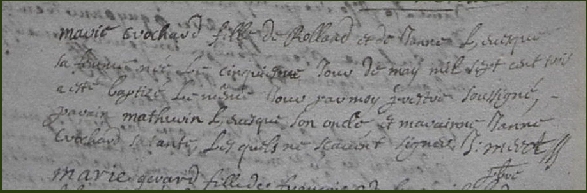 marie Evochard fille de Rolland et de Janne Levesque
sa femme née le cinquieme jour de may mil sept cent trois
a esté baptizé le même jour par moy prestre soussigné,
parain mathurin Levesque son oncle et maraine Janne
Evochard sa tante, lesquels ne scavent signer
marie fille de françois